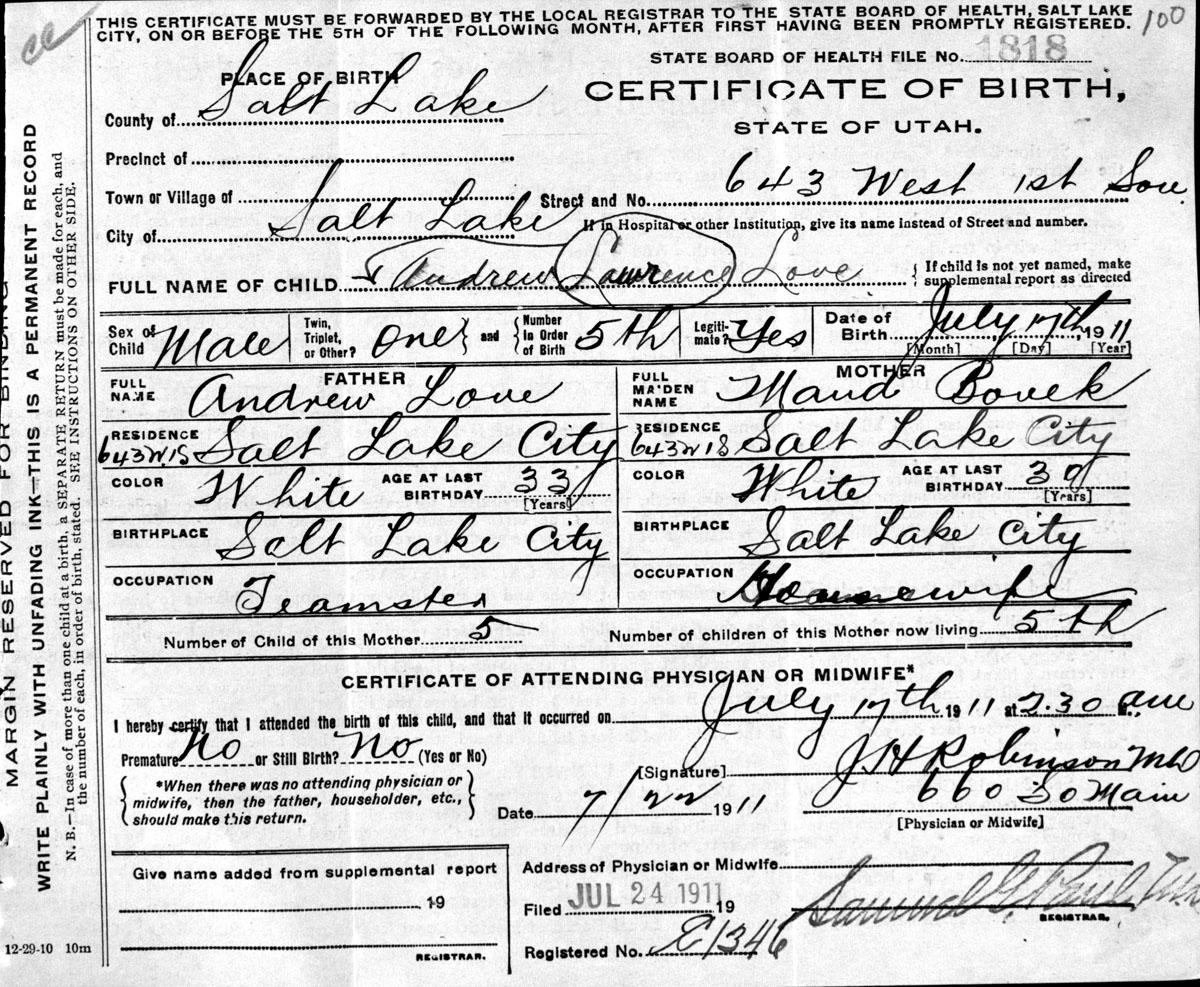 100
THIS CERTIFICATE MUST BE FORWARDED BY THE LOCAL REGISTRAR TO THE STATE BOARD OF HEALTH, SALT LAKE
CITY, ON OR BEFORE THE 5TH OF THE FOLLOWING MONTH, AFTER FIRST HAVING BEEN PROMPTLY REGISTERED.
MARGIN RESERVED FOR BINDING
WRITE PLAINLY WITH UNFADING INK—THIS IS A PERMANENT RECORD
N. B.—In case of more than one child at a birth, a SEPARATE RETURN must be made for each, and
the number of each, in order of birth, stated. SEE INSTRUCTIONS ON OTHER SIDE.
STATE BOARD OF HEALTH FILE NO. 1818
CERTIFICATE OF BIRTH,
STATE OF UTAH.
PLACE OF BIRTH
County of Salt Lake
Precinct of
Town or Village of
Street and No. 643 West 1st Sou
City of Salt Lake
If in Hospital or other Institution, give its name instead of Street and number.
FULL NAME OF CHILD Andrew Lawrence Love
If child is not yet named, make
supplemental report as directed
Sex of Child Male
Twin, Triplet, or Other? One and Number in Order of Birth 5th
Legitimate? Yes
Date of Birth July 17th, 1911
[Month] [Day] [Year]
FATHER
FULL NAME Andrew Love
RESIDENCE 643 W 1 S Salt Lake City
COLOR White AGE AT LAST BIRTHDAY 33 [Years]
BIRTHPLACE Salt Lake City
OCCUPATION Teamster
MOTHER
FULL MAIDEN NAME Maud Bovek
RESIDENCE 643 W 1 S Salt Lake City
COLOR White AGE AT LAST BIRTHDAY 30 [Years]
BIRTHPLACE Salt Lake City
OCCUPATION Housewife
Number of Child of this Mother 5 Number of children of this Mother now living 5th
CERTIFICATE OF ATTENDING PHYSICIAN OR MIDWIFE*
I hereby certify that I attended the birth of this child, and that it occurred on July 17th 1911 at 2.30 am
Premature No or Still Birth? No (Yes or No)
*When there was no attending physician or
midwife, then the father, householder, etc.,
should make this return.
[Signature] J H Robinson MD
Date 7/22 1911 660 So Main
[Physician or Midwife]
Give name added from supplemental report
19
REGISTRAR.
Address of Physician or Midwife
Filed JUL 24 1911 19
Samuel G. Paul
REGISTRAR.
Registered No. E1346
12-29-10 10m